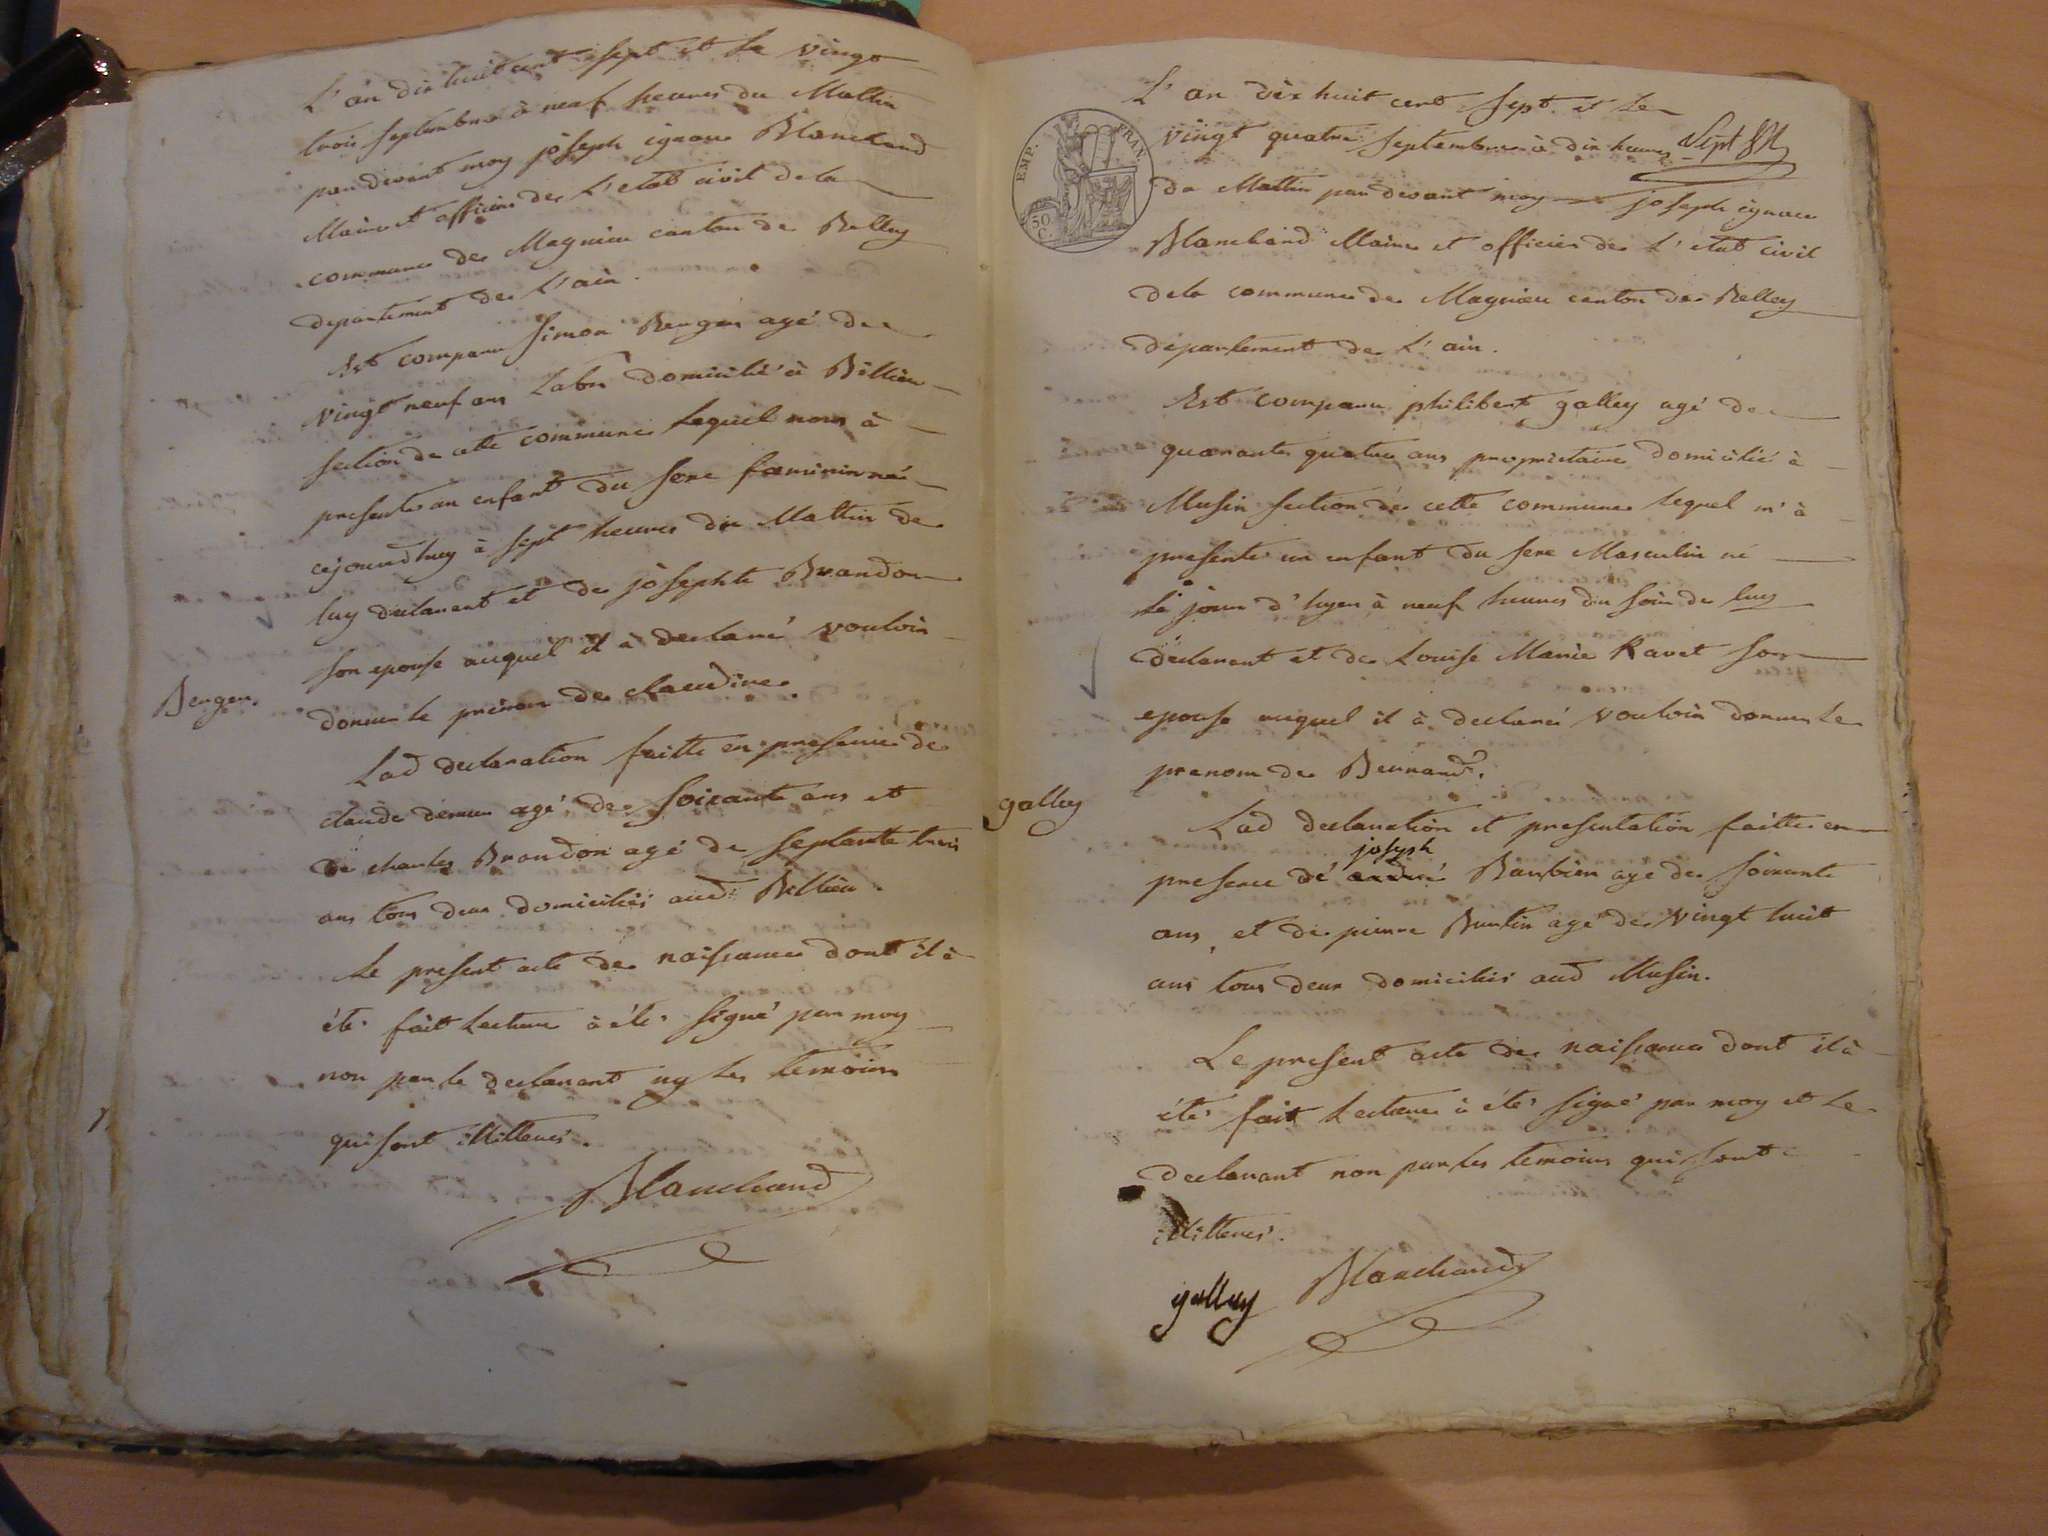 L'an dix huit cent sept et le vingt
trois septembre à neuf heures du Mattin
par devant moy joseph ignace Blanchard
Maire et officier de L'etat civil de la
commune de Magnieu canton de Belley
departement de L'ain.
Est comparu Simon Berger agé de
vingt neuf ans Labr domicilié à Billieu
section de cette commune Lequel nous à
presenté un enfant du sexe faeminin né
cejourdhuy à sept heures du Mattin de
luy declarant et de josephte Brandon
son epouse auquel il à declaré vouloir
donner le prénom de claudine.
Berger.
Lad declaration faitte en presence de
claude agé de soixante ans et
de charles Brondon agé de septante trois
ans tous deux domiciliés aud Billieu.
Le present acte de naissance dont il à
été fait Lecture à été signé par moy
non par le declarant ny les temoins
qui sont illitterés.
Blanchard
EMP. FRAN
50 C.
L'an dix huit cent sept et le
vingt quatre septembre à dix heures
du Mattin par devant moy joseph ignace
Blanchard Maire et officier de L'etat civil
dela commune de Magnieu canton de Belley
département de L'ain.
Est comparu philibert galley agé de
quarante quatre ans propriétaire domicilié à
Musin section de cette commune lequel m'à
presenté un enfant du sexe Masculin né
Le jour d'hyer à neuf heures du soir de luy
declarant et de Louise Marie Ravet son
epouse auquel il à declaré vouloir donner le
prenom de Bernard.
galley
Lad declaration et presentation faitte en
joseph
presence de andré Barbier agé de soixante
ans, et de pierre Burtin agé de vingt huit
ans tous deux domiciliés aud Musin.
Le present acte de naissance dont il à
été fait Lecture à été signé par moy et le
declarant non par les temoins qui sont
illitterés.
galley Blanchard